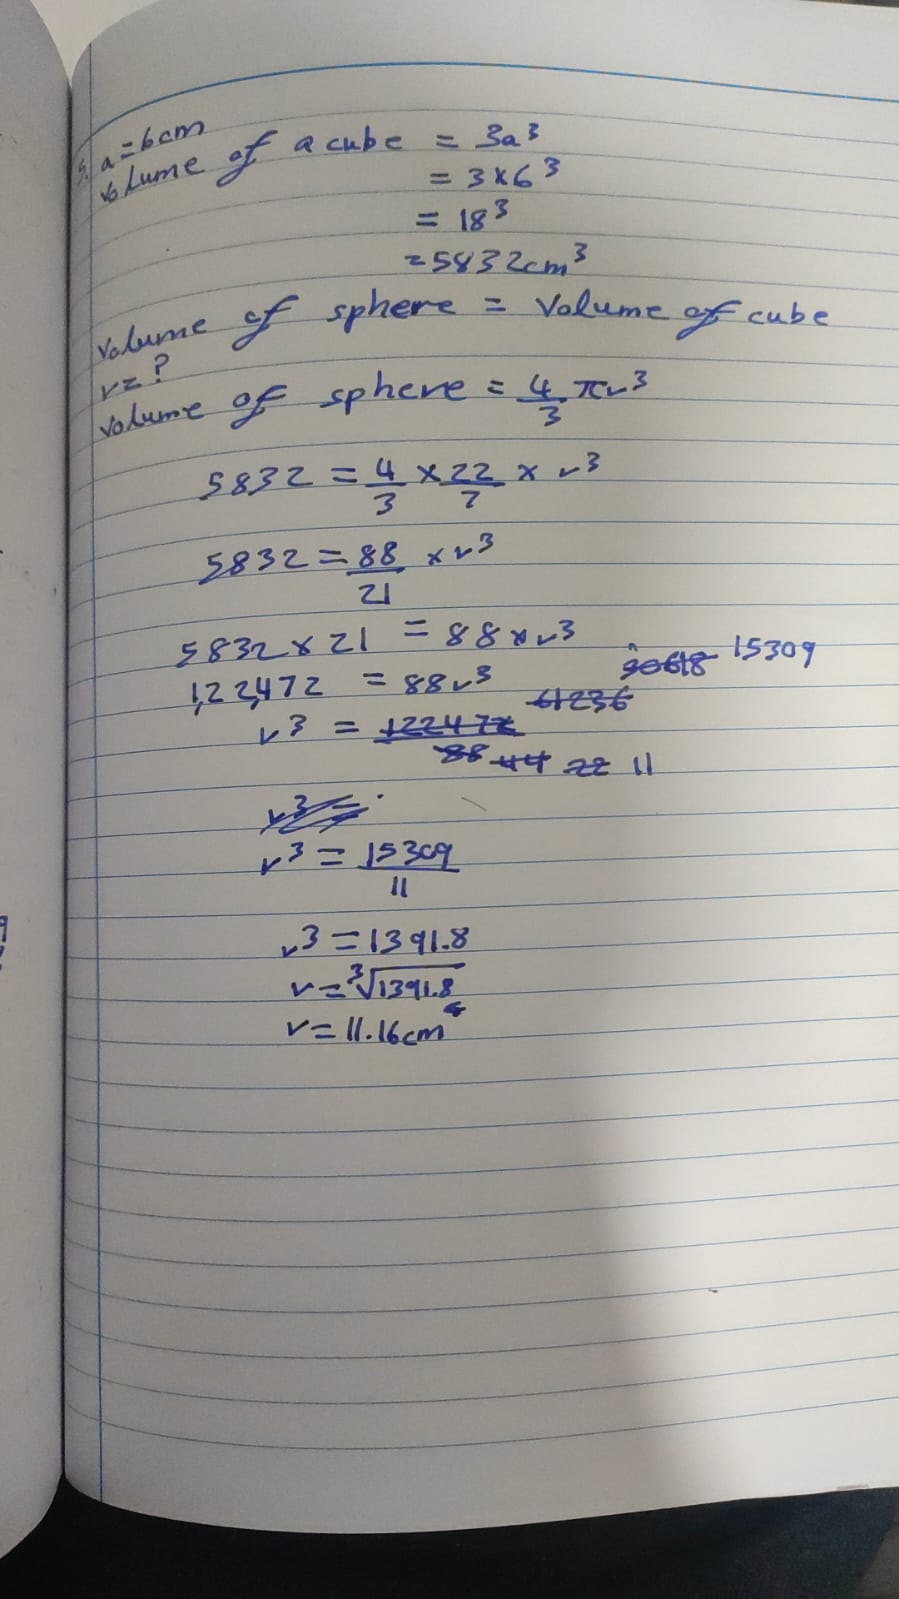 5. a=6cm
Volume of a cube = 3a³
= 3×6³
= 18³
=5832cm³
Volume of sphere = Volume of cube
r=?
Volume of sphere = 4/3 πr³
5832 = 4/3 × 22/7 × r³
5832 = 88/21 × r³
5832 × 21 = 88 × r³
1,22,472 = 88r³
r³ = 122472/88 61236 44 30618 22 15309 11
r³ =
r³ = 15309/11
r³ = 1391.8
r = ³√1391.8
r = 11.16cm